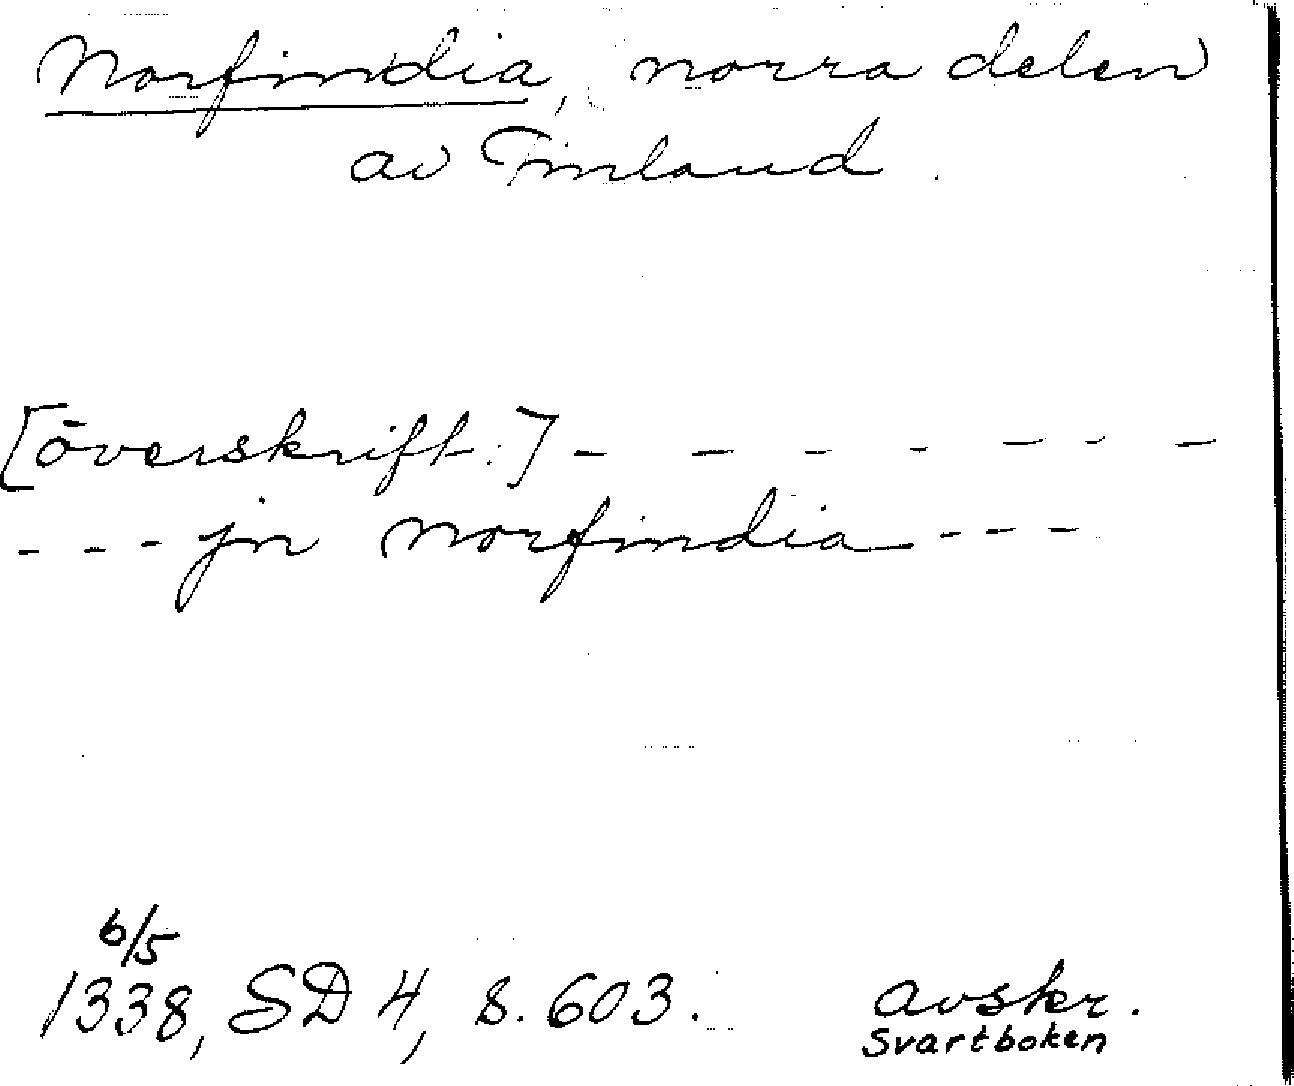 Norfindia, norra delen
av Finland.
[överskrift:] - - - - - - -
- - - jn norfindia - - -
6/5
1338, SD 4, s. 603.
avskr.
Svartboken